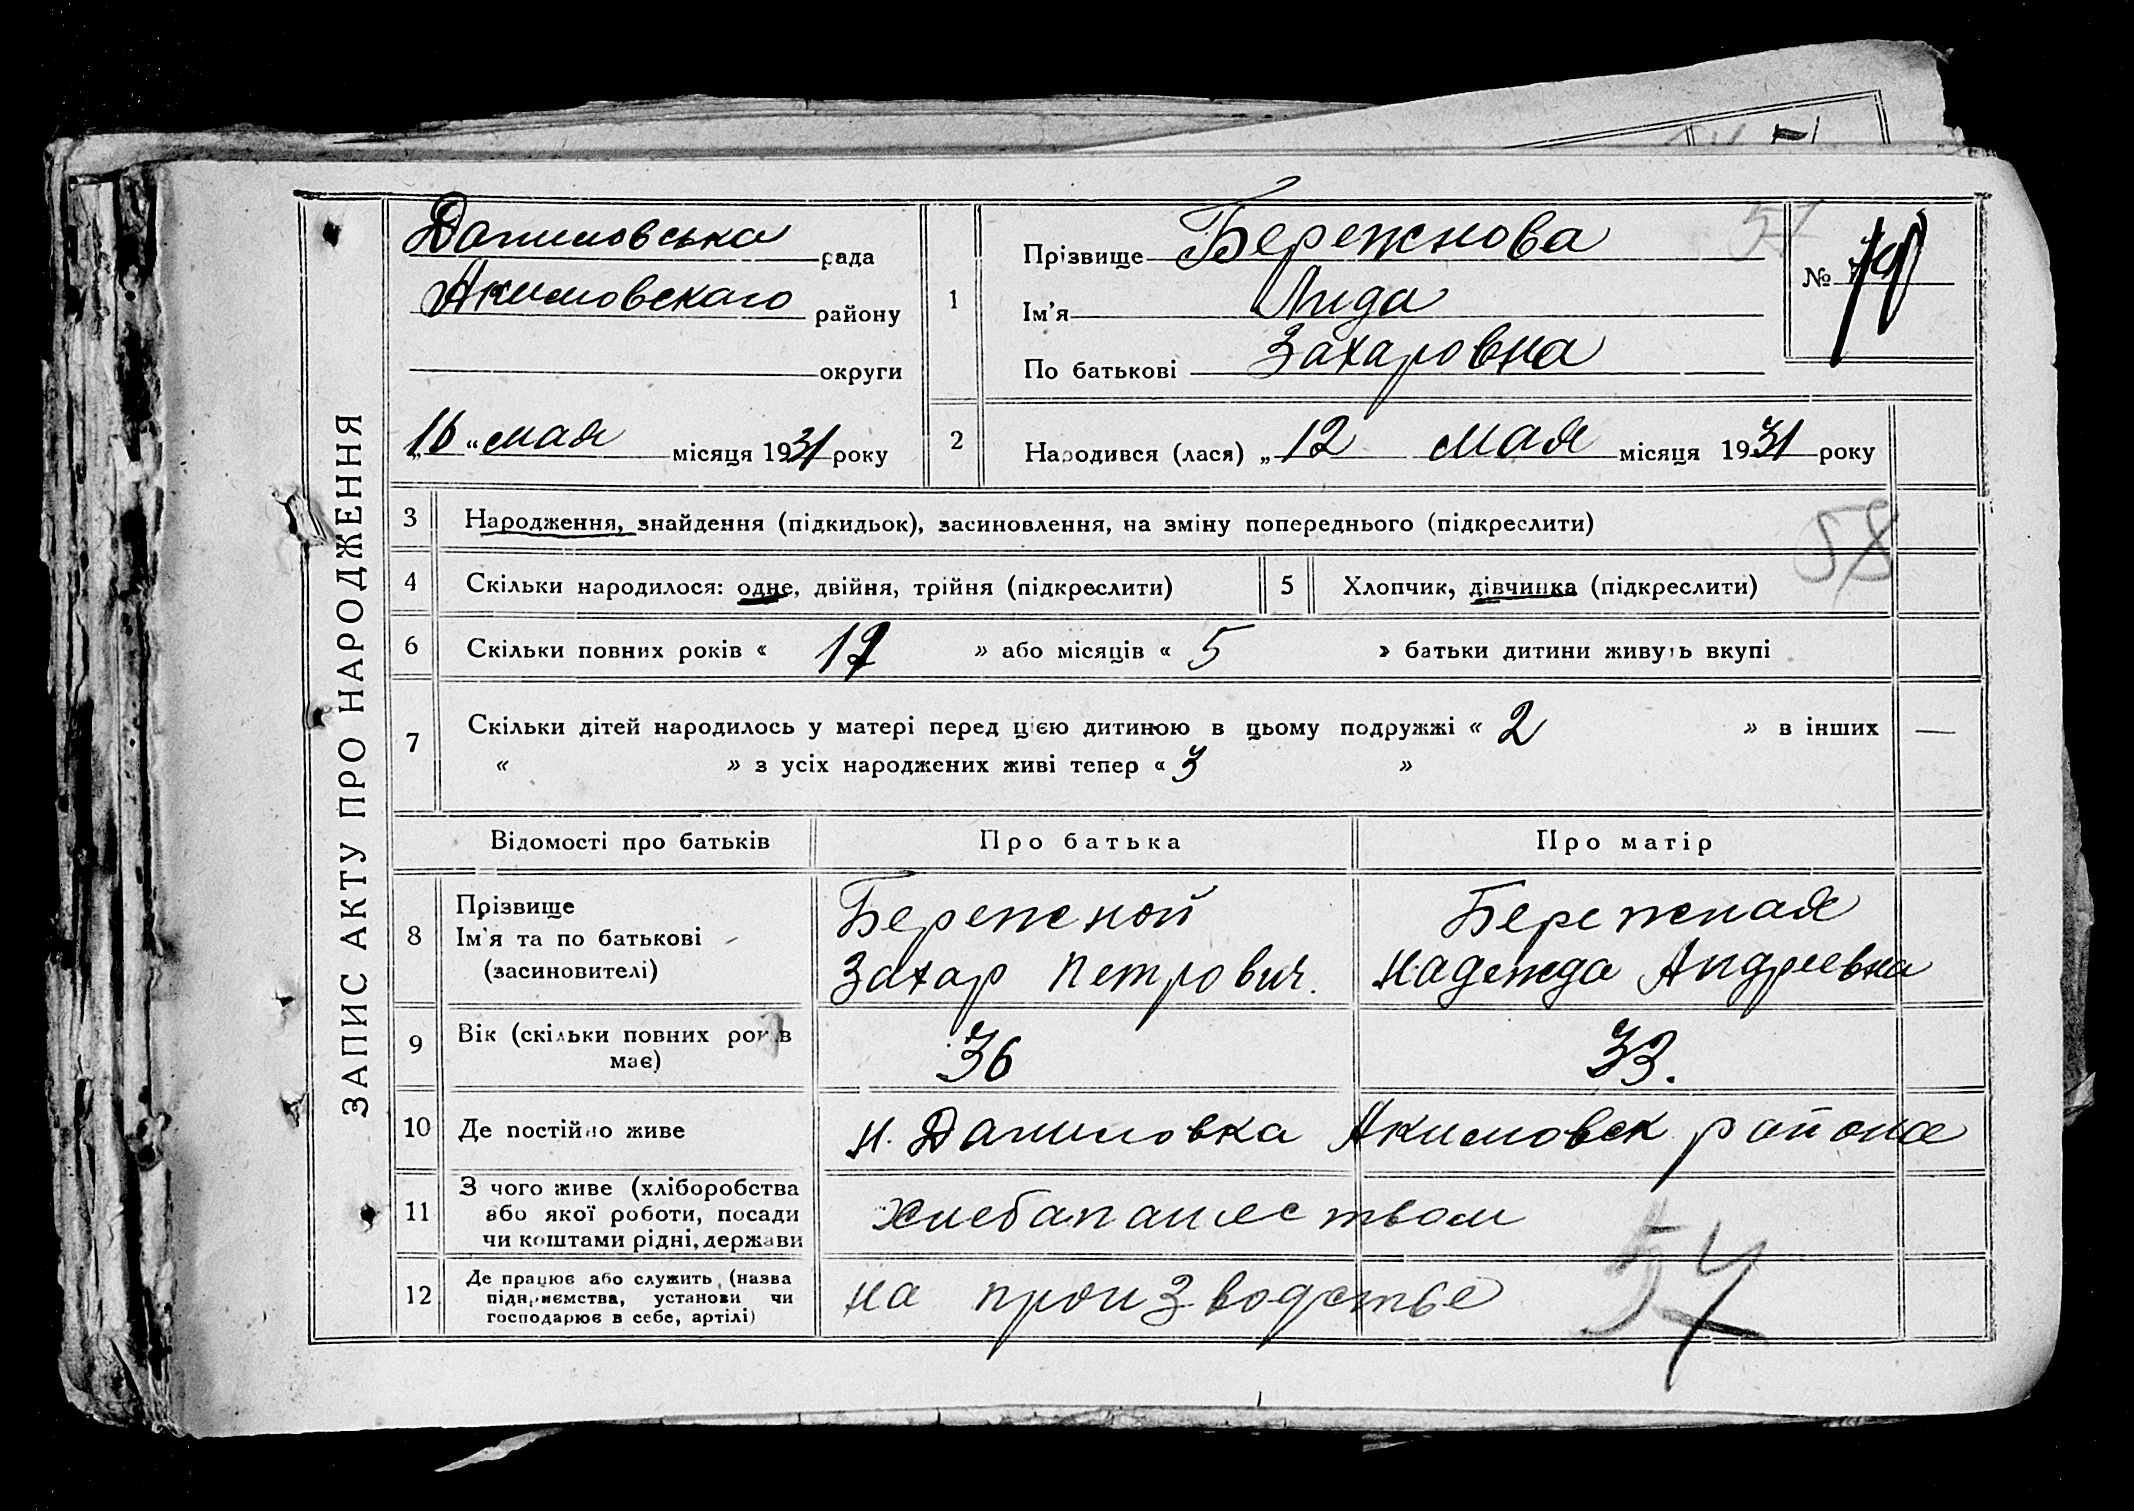 ЗАПИС АКТУ ПРО НАРОДЖЕННЯ
Даниловська рада
Акимовскаго району
округи
„16“ мая місяця 1931 року
1
Прізвище Бережнова
Ім'я Лида
По батькові Захаровна
57
№
2
Народився (лася) „12 мая місяця 1931 року
3 Народження, знайдення (підкидьок), засиновлення, на зміну попереднього (підкреслити)
58
4 Скільки народилося: одне, двійня, трійня (підкреслити)
5 Хлопчик, дівчинка (підкреслити)
6 Скільки повних років « 17 » або місяців « 5 » батьки дитини живуть вкупі
7 Скільки дітей народилось у матері перед цією дитиною в цьому подружжі « 2 » в інших —
« » з усіх народжених живі тепер « 3 »
Відомості про батьків Про батька Про матір
8 Прізвище
Ім'я та по батькові
(засиновителі)
Бережной
Захар Петрович.
Бережная
Надежда Андреевна
9 Вік (скільки повних років
має)
36
33.
10 Де постійно живе
н. Даниловка Акимовск района
11 З чого живе (хліборобства
або якої роботи, посади
чи коштами рідні, держави
хлебапашеством
12 Де працює або служить (назва
підприємства, установи чи
господарює в себе, артілі)
на производстве
57